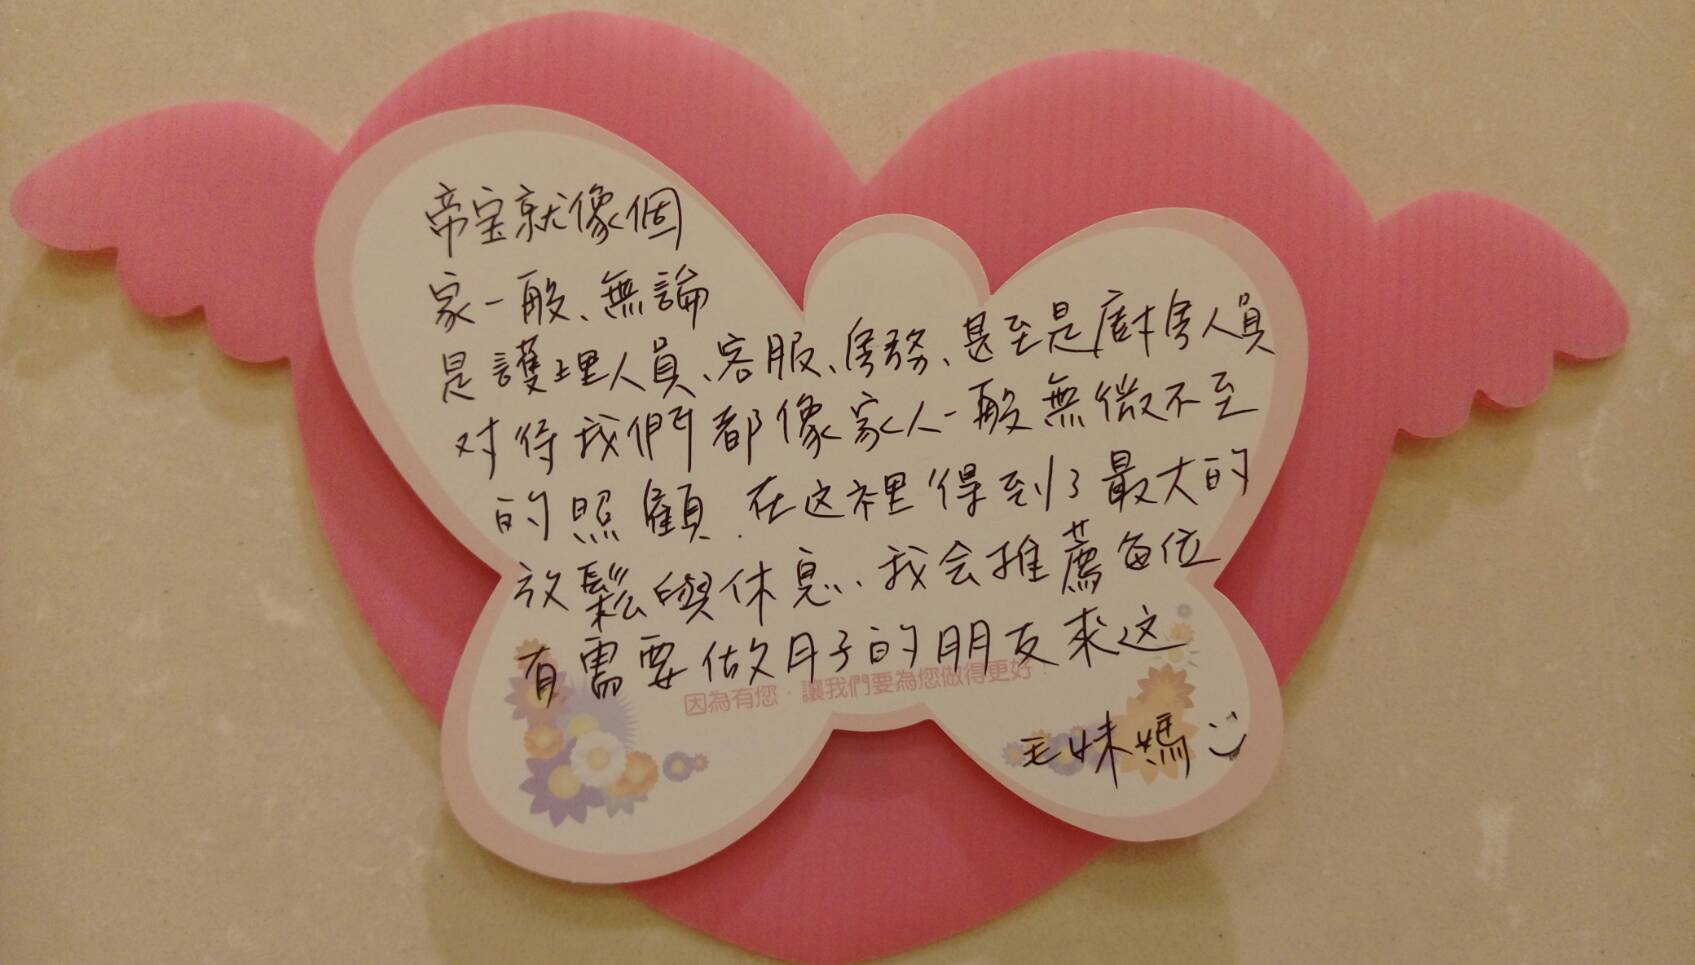 帝宝就像個
家一般、無論
是護理人員、客服、房務、甚至是廚房人員
对待我們都像家人一般無微不至
的照顧.在这裡得到了最大的
放鬆與休息、我会推薦每位
有需要做月子的朋友來这
因為有您，讓我們要為您做得更好！
毛妹媽